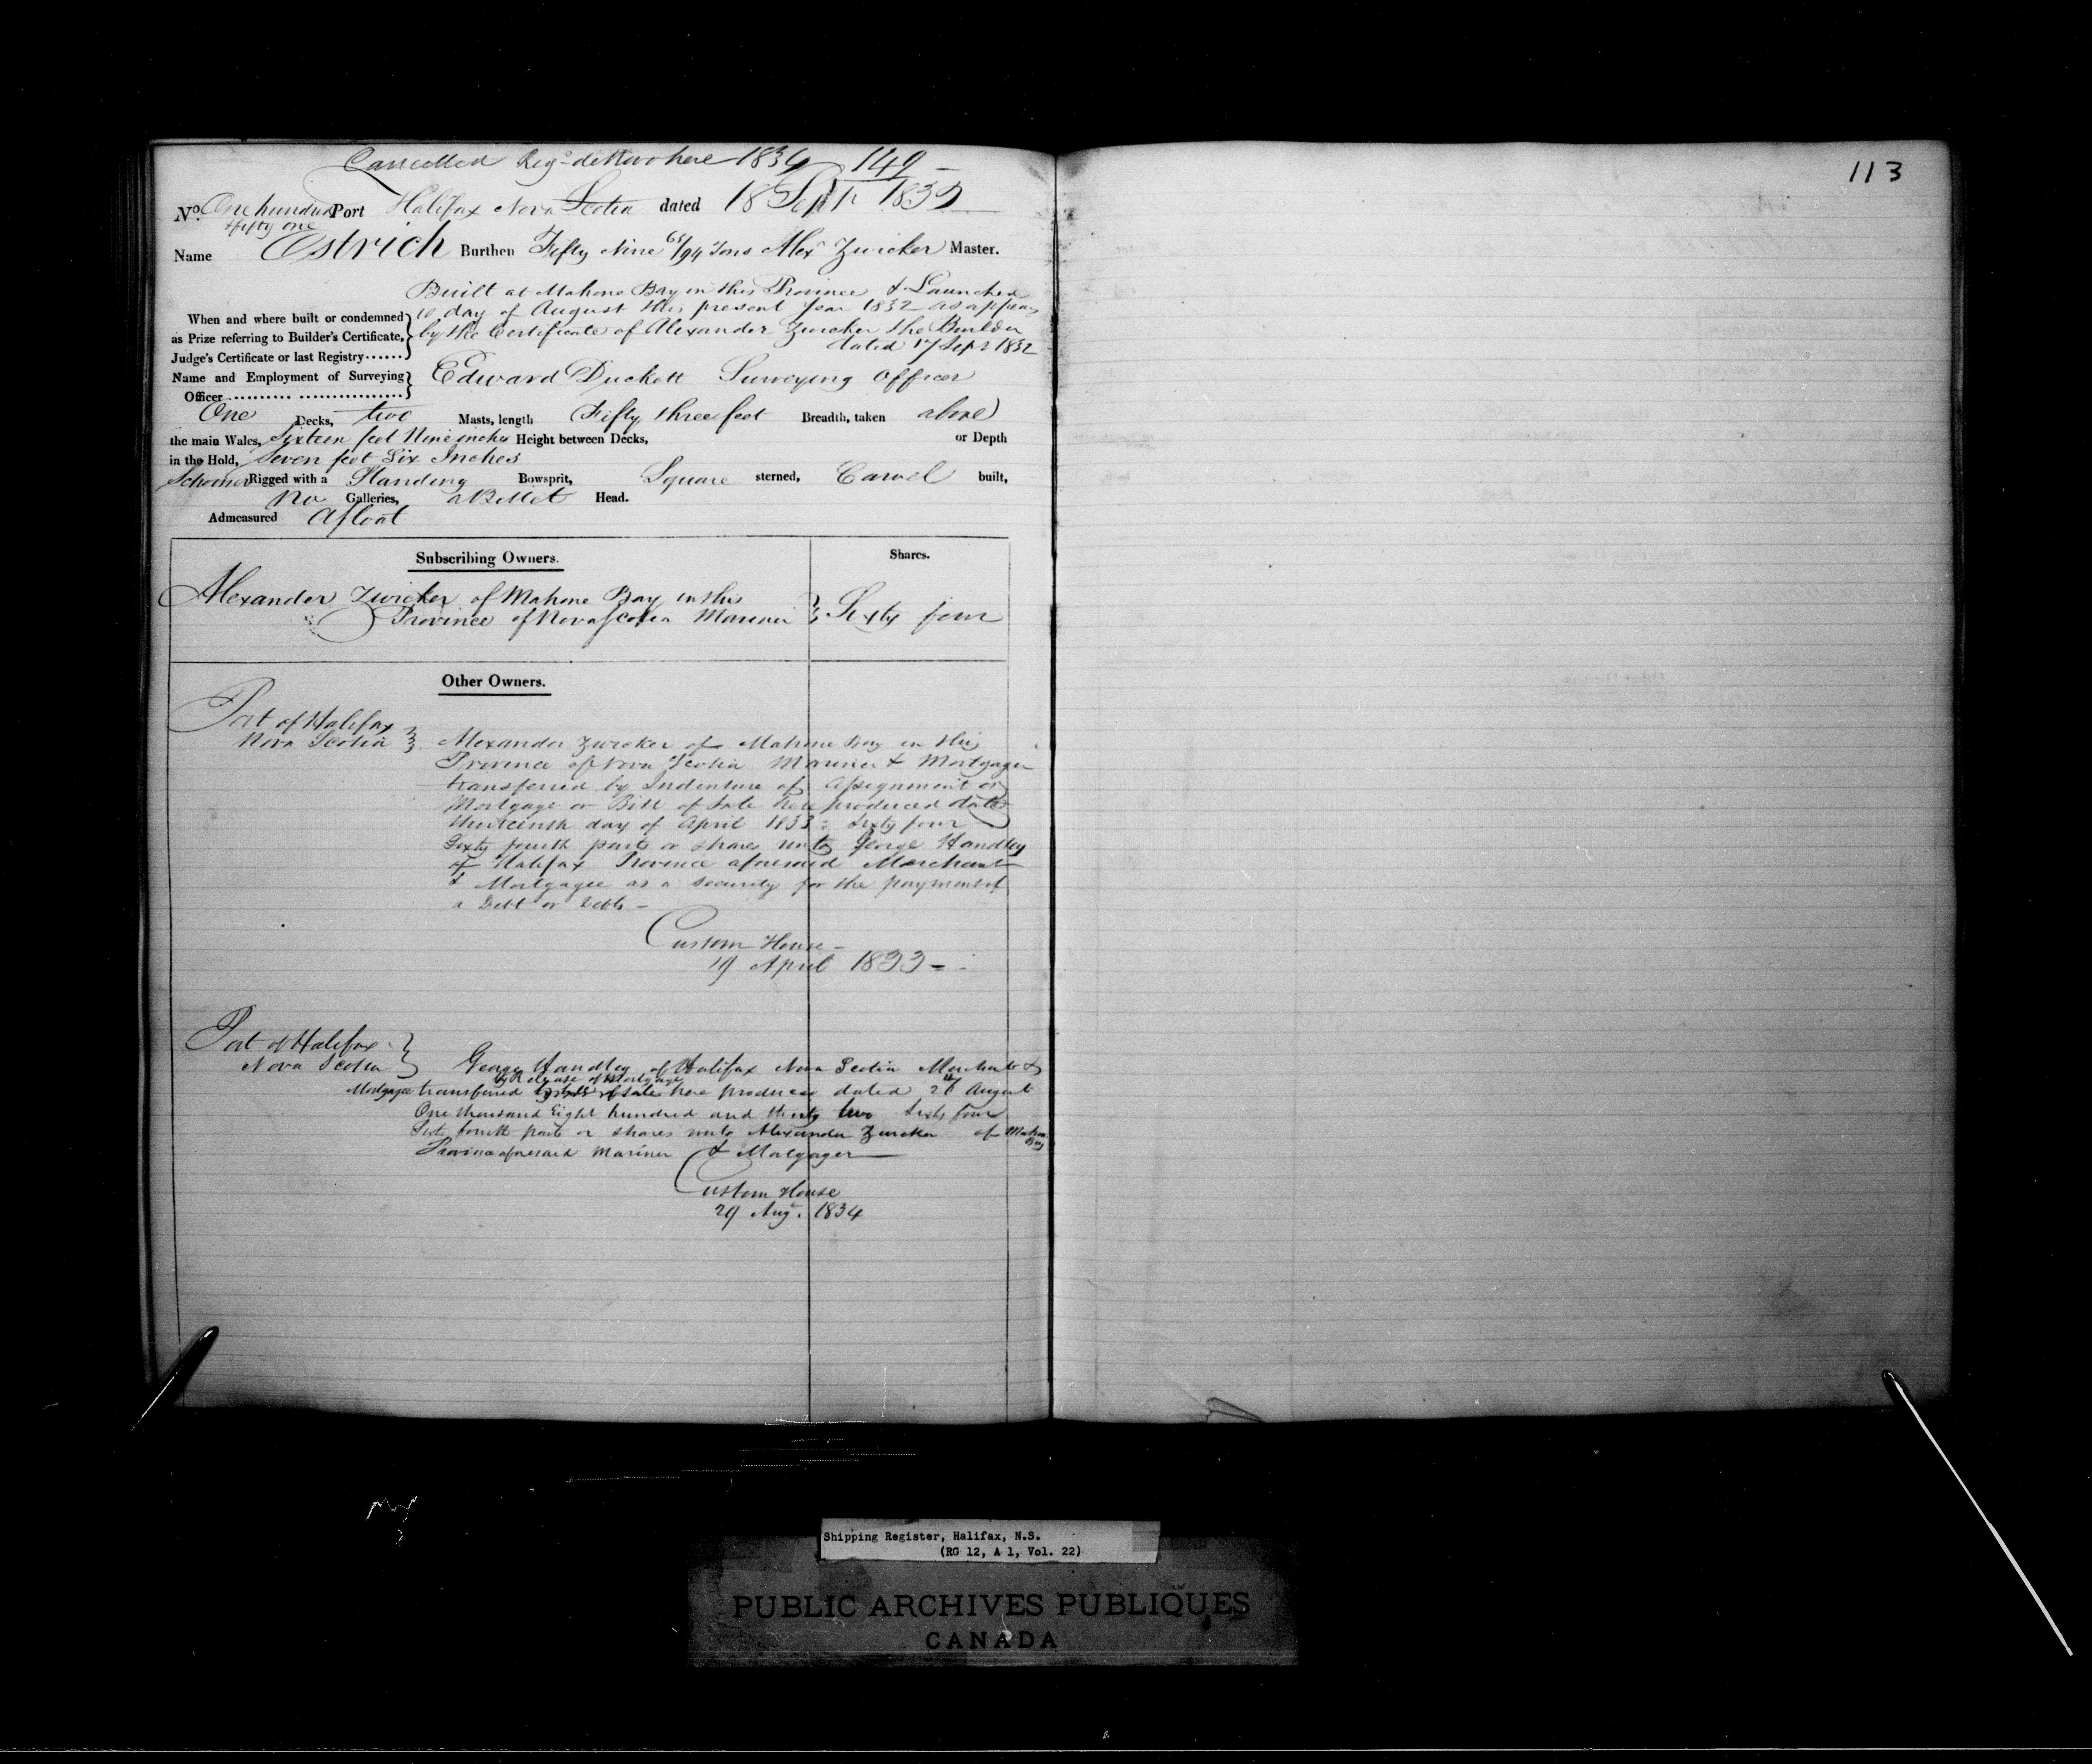 Cancelled Reg.d de Novo here 1834 149
113
No. One hundred Port Halifax Nova Scotia dated 18 Sept. 1832
& fifty one
Name Ostrich Burthen Fifty Nine 65/94 Tons Alexr Zwicker Master.
Built at Mahone Bay in this Province & Launched
When and where built or condemned 10 day of August this present Year 1832 as appears
as Prize referring to Builder's Certificate, by the Certificate of Alexander Zwicker the Builder
Judge's Certificate or last Registry...... dated 17 Sept 1832
Name and Employment of Surveying Edward Duckett Surveying Officer
Officer
One Decks, two Masts, length Fifty three feet Breadth, taken above
the main Wales, Sixteen feet Nine inches Height between Decks, or Depth
in the Hold, Seven feet Six Inches
Schooner Rigged with a Standing Bowsprit, Square sterned, Carvel built,
No Galleries, a Billet Head.
Admeasured Afloat
Subscribing Owners. Shares.
Alexander Zwicker of Mahone Bay in this
Province of Nova Scotia Mariner Sixty four
Other Owners.
Port of Halifax
Nova Scotia Alexander Zwicker of Mahone Bay in this
Province of Nova Scotia Mariner & Mortgager
transferred by Indenture of Assignment or
Mortgage or Bill of Sale here produced dated
thirteenth day of April 1833 Sixty four
Sixty fourth parts or shares unto George Handley
of Halifax Province aforesaid Merchant
& Mortgagee as a security for the payment of
a Debt or Debts
Custom House
19 April 1833
Port of Halifax
Nova Scotia George Handley of Halifax Nova Scotia Merchant &
by Release of Mortgage
Mortgagee transferred by bill of Sale here produced dated August
One thousand Eight hundred and thirty two Sixty four
Sixty fourth parts or shares unto Alexander Zwicker of Mahone
Bay
Province aforesaid Mariner & Mortgager
Custom House
29 Aug. 1834
Shipping Register, Halifax, N.S.
(RG 12, A 1, Vol. 22)
PUBLIC ARCHIVES PUBLIQUES
CANADA